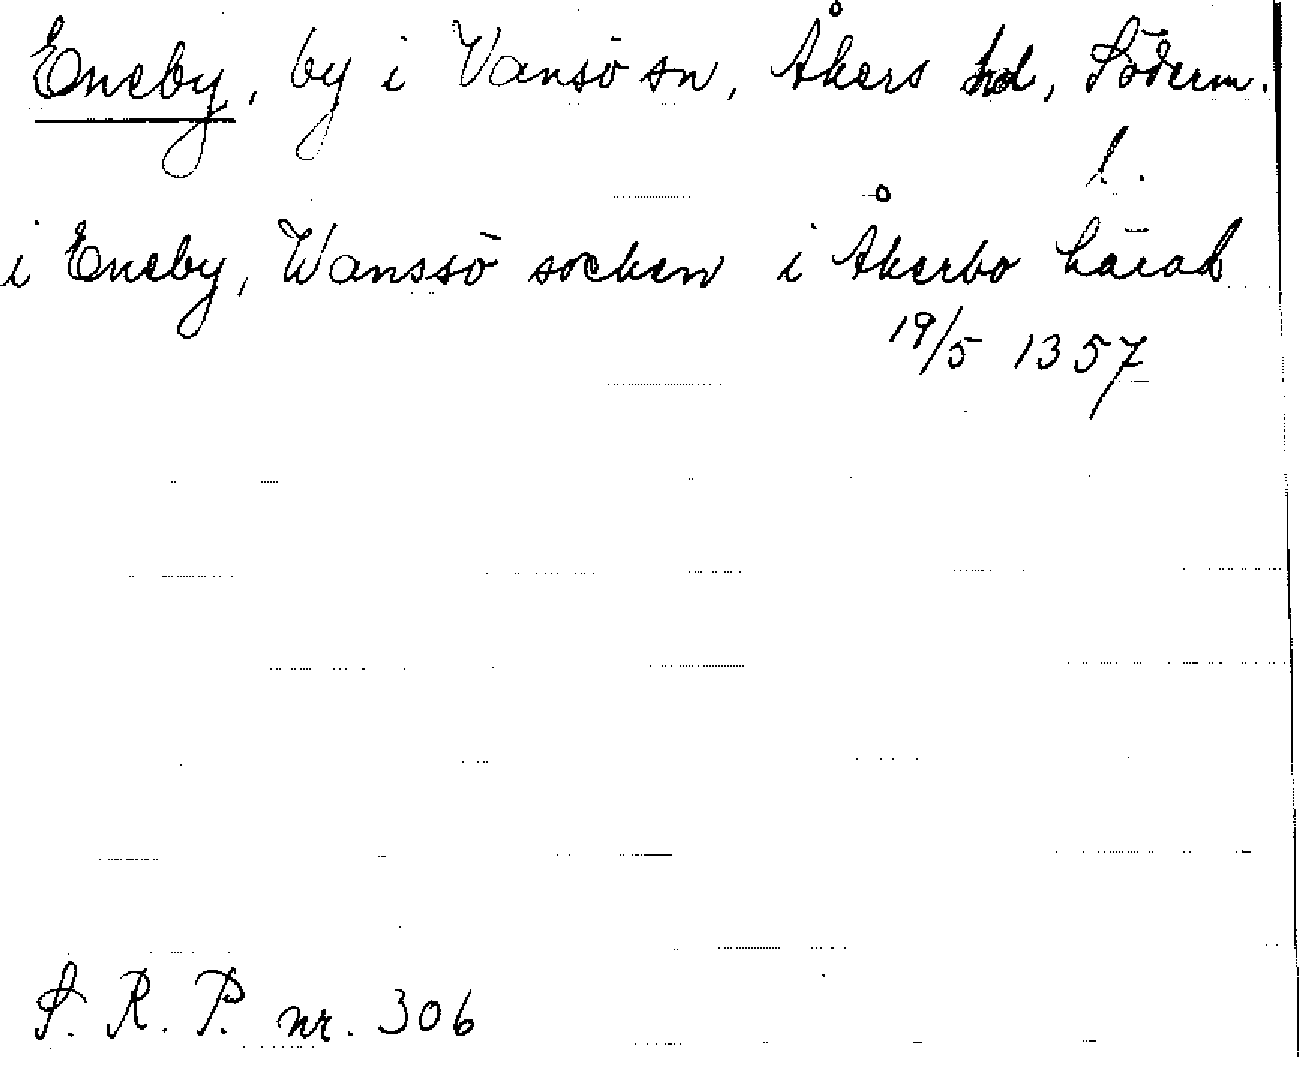 Eneby, by i Vansö sn, Åkers hd, Söderm.
l.
i Eneby, Wanssö socken i Åkerbo härad
19/5 1357
S. R. P. nr. 306